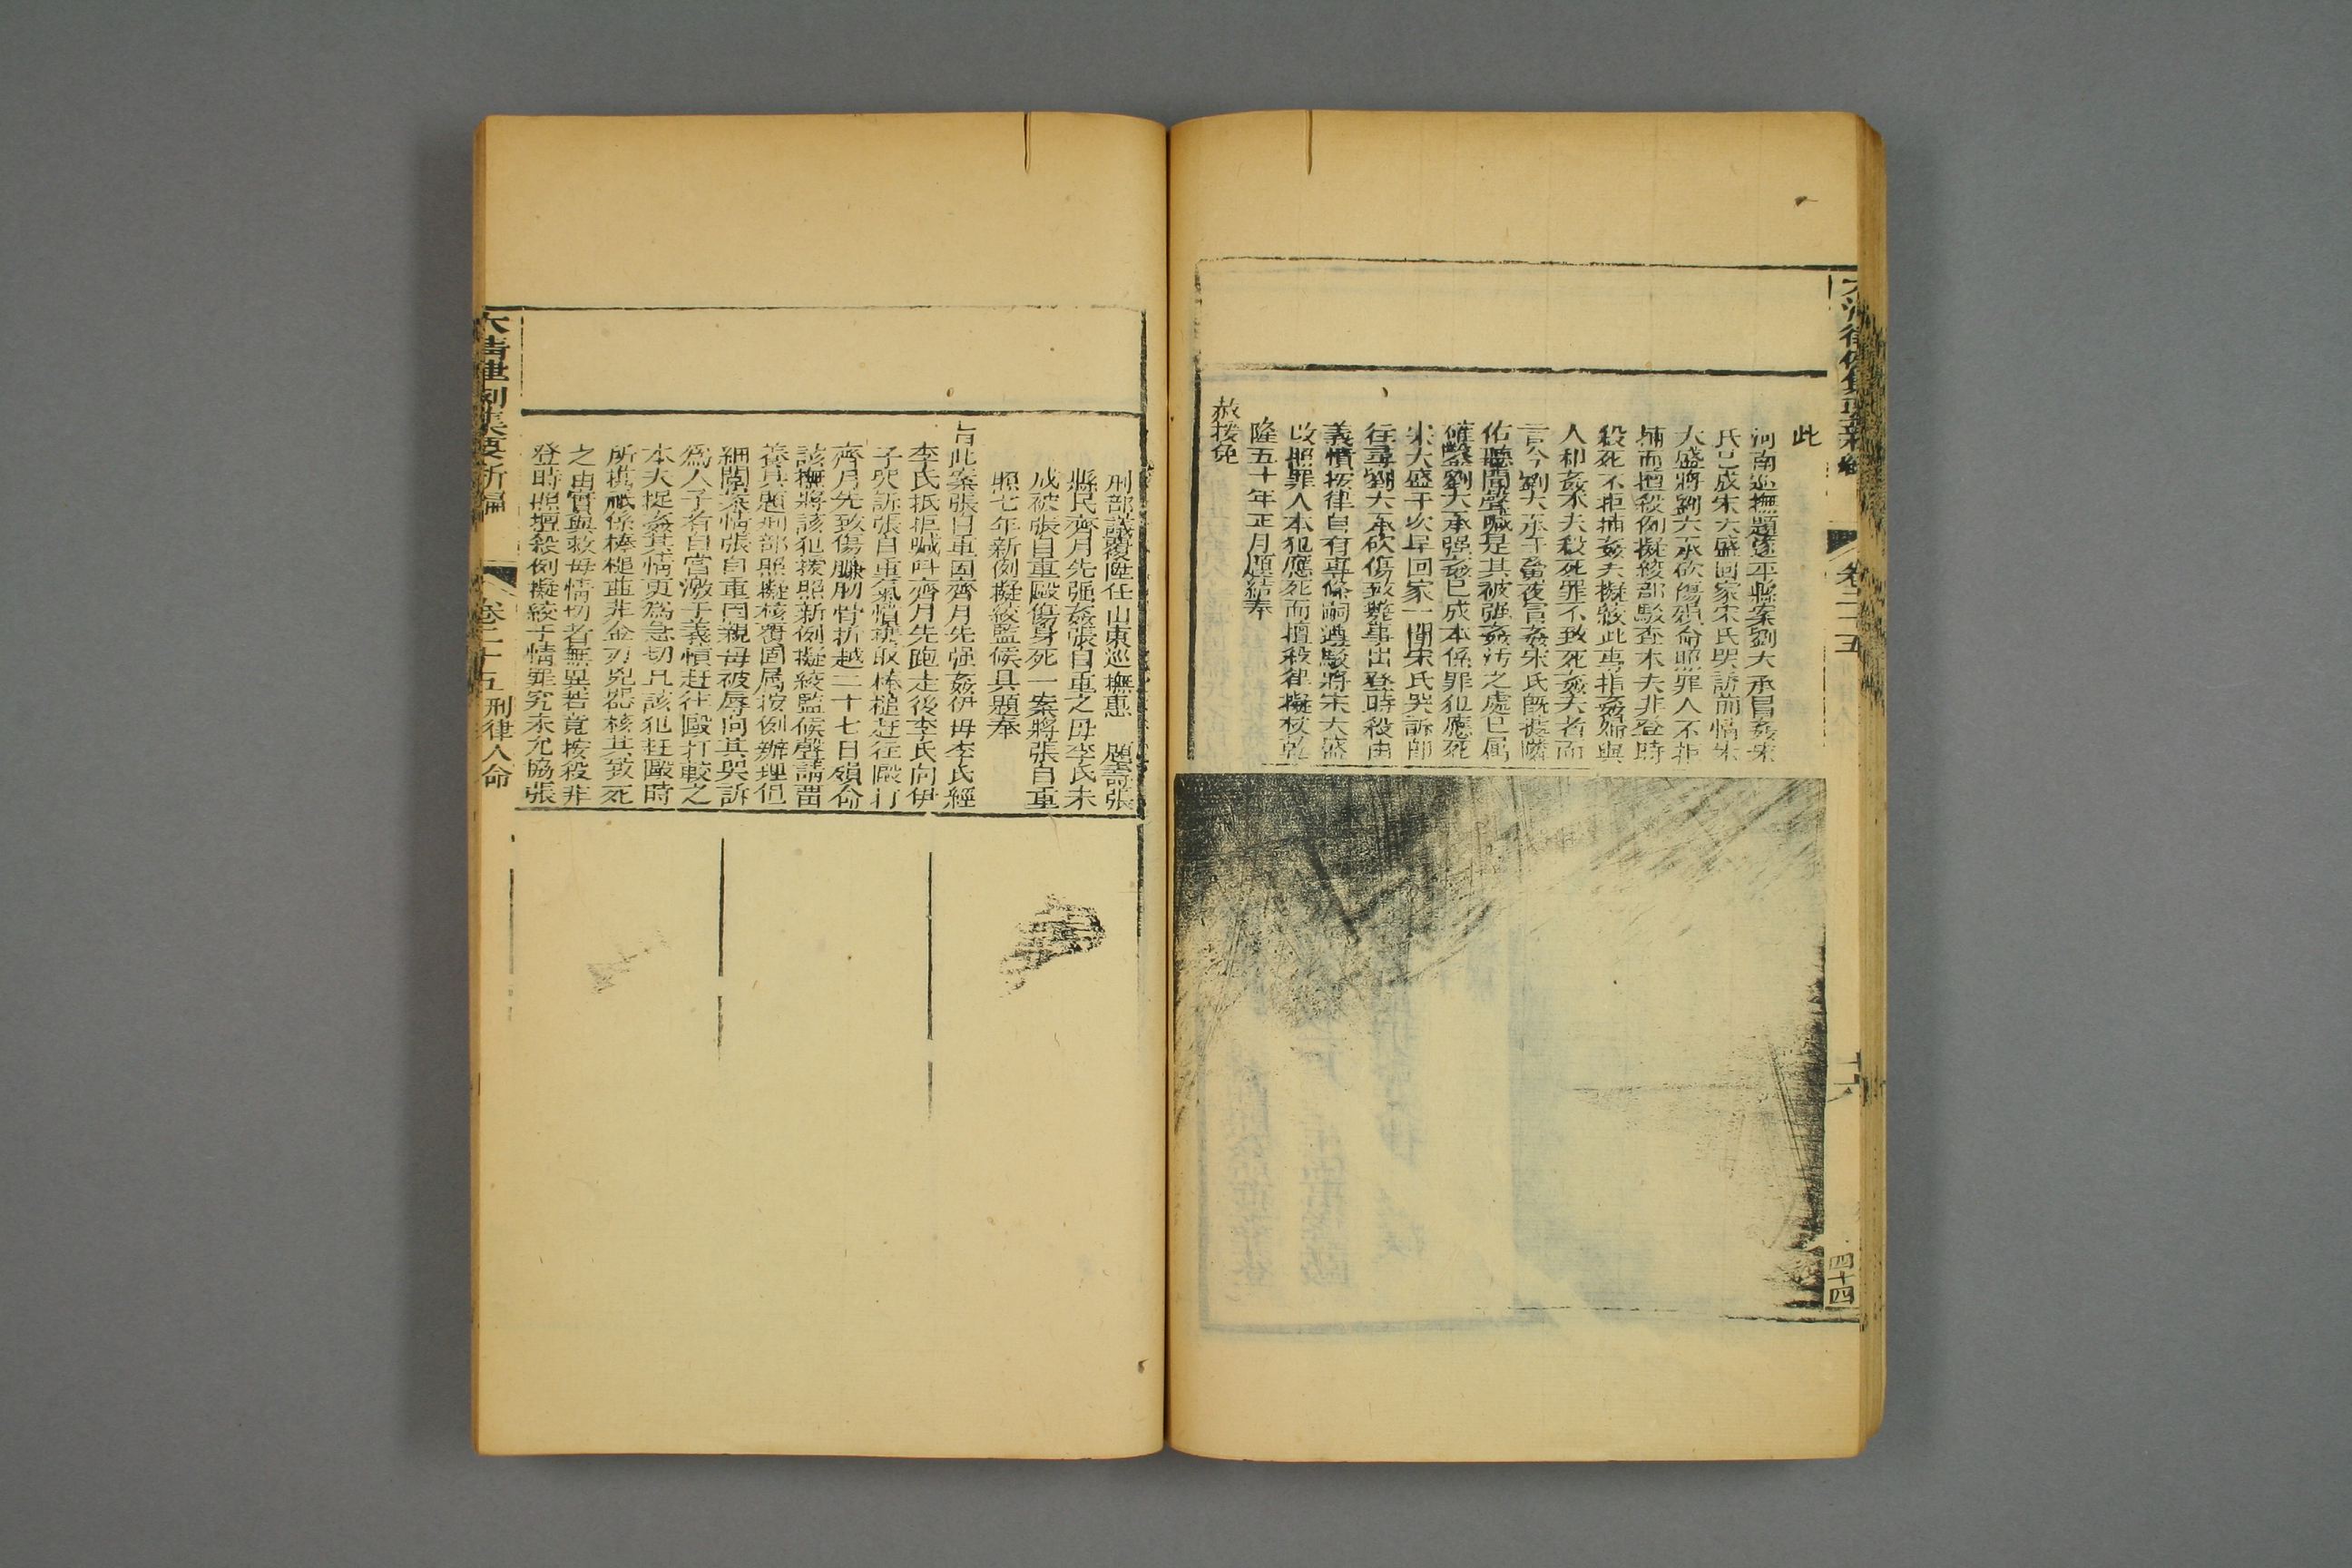 此
河南巡撫題遂平縣案劉大承冒姦宋
氏已成宋大盛回家宋氏哭訴前情宋
大盛將劉大承砍傷殞命照罪人不拒
捕而擅殺例擬絞部駁查本夫非登時
殺死不拒捕姦夫擬絞此專指姦婦與
人和姦本夫殺死罪不致死姦夫者而
言今劉大承于夤夜冒姦宋氏既被隣
佑聽聞聲喊是其被强姦汚之處已屬
確鑿劉大承强姦已成本係罪犯應死
宋大盛于次早回家一聞宋氏哭訴卽
往尋劉大承砍傷致斃事出登時殺由
義憤按律自有專條嗣遵駁將宋大盛
改照罪人本犯應死而擅殺律擬杖乾
隆五十年正月題結奉
赦援免
卷二十五
十六
四十四
刑部議覆陞任山東巡撫惠 題壽張
縣民齊月先强姦張自重之母李氏未
成被張自重毆傷身死一案將張自重
照七年新例擬絞監候具題奉
旨此案張自重因齊月先强姦伊母李氏經
李氏抵拒喊叫齊月先跑走後李氏向伊
子哭訴張自重氣憤輒取棒槌赶往毆打
齊月先致傷臁肕骨折越二十七日殞命
該撫將該犯援照新例擬絞監候聲請畱
養具題刑部照擬核覆固屬按例辦理但
細閱案情張自重因親母被辱向其哭訴
爲人子者自當激于義憤赶往毆打較之
本夫捉姦其情更爲急切凡該犯赶毆時
所攜祇係棒槌並非金刃兇器核其致死
之由實與救母情切者無異若竟按殺非
登時照擅殺例擬絞于情罪究未允協張
大淸律例集要新編 卷二十五 刑律人命